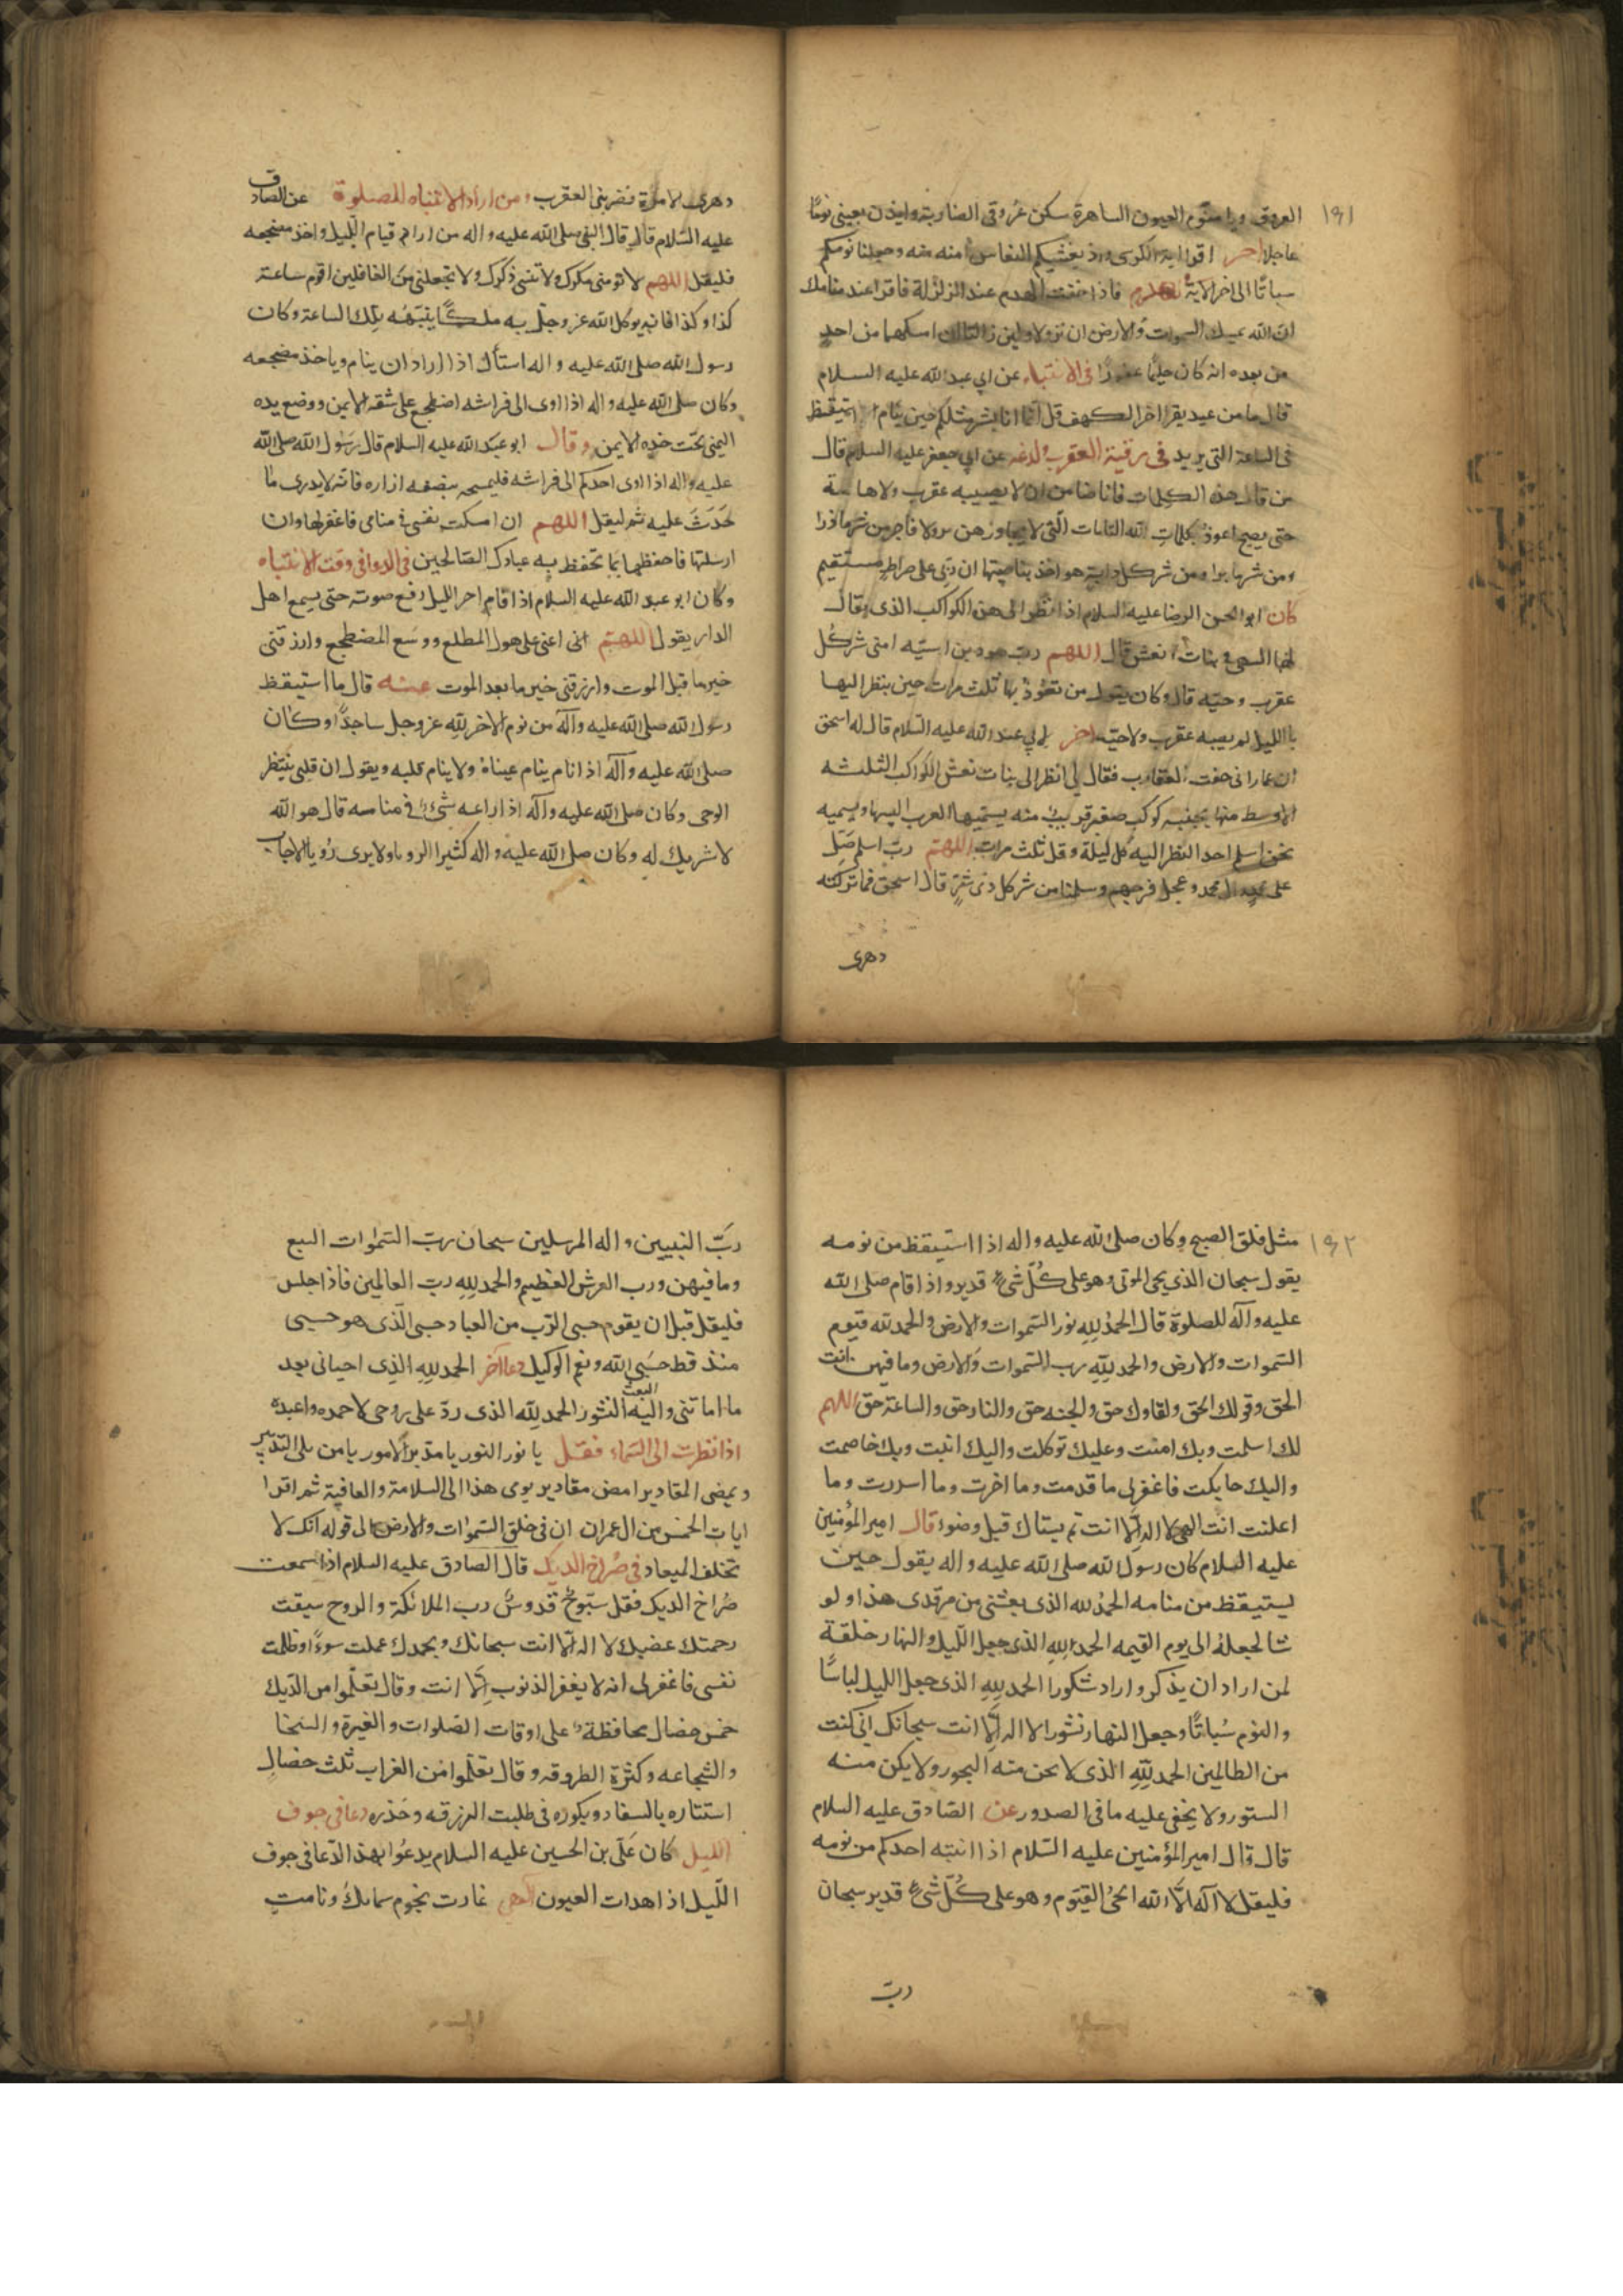 ١٩١
العروق ويا منوم العيون الساهرة سكن عروقي الضاربة وايذن بعيني نوما
عاجلا اخر اقرا اية الكرسي واذ يغشيكم النعاس امنه منه وجعلنا نومكم
سباتا الى اخر الاية للهدم فاذا خفت الهدم عند الزلزلة فاقرا عند منامك
ان الله يمسك السموات والارض ان تزولا ولين زالتا ان امسكهما من احد
من بعده انه كان حليما غفورا في الانتباه عن ابي عبد الله عليه السلام
قال ما من عبد يقرا اخر الكهف قل انما انا بشر مثلكم حين ينام الا استيقظ
في الساعة التي يريد في رقية العقرب ولدغه عن ابي جعفر عليه السلام قال
من قال هذه الكلمات فانا ضامن ان لا يصيبه عقرب ولا هامة
حتى يصبح اعوذ بكلمات الله التامات التي لا يجاوزهن بر ولا فاجر من شر ما ذرا
ومن شر ما برا ومن شر كل دابة هو اخذ بناصيتها ان ربي على صراط مستقيم
كان ابو الحسن الرضا عليه السلام اذا نظر الى هذه الكواكب الذي يقال
لها السهى في بنات نعش قال اللهم رب هود بن اسيه امني شر كل
عقرب وحيه قال وكان يقول من تعوذ بها ثلث مرات حين ينظر اليها
باالليل لم يصبه عقرب ولا حيه اخر لابي عبد الله عليه السلام قال له اسحق
ابن عمار اني خفت العقارب فقال لي انظر الى بنات نعش الكواكب الثلثه
الاوسط منها بجنبه كوكب صغير قريب منه يسميها العرب السها ويسميه
نحن اسلم احد النظر اليه كل ليلة وقل ثلث مرات اللهم رب اسلم صل
على محمد وال محمد وعجل فرجهم وسلمنا من شر كل ذي شر قال اسحق فما تركته
دهري
دهري الا مرة فضربني العقرب ومن اراد الانتباه للصلوة عن الصادق
عليه السلام قال قال النبي صلى الله عليه واله من اراد قيام الليل واخذ مضجعه
فليقل اللهم لا تومني مكرك ولا تنسني ذكرك ولا تجعلني من الغافلين اقوم ساعة
كذا وكذا فانه يوكل الله عز وجل به ملكا ينبهه تلك الساعة وكان
رسول الله صلى الله عليه واله استاك اذا اراد ان ينام وياخذ مضجعه
وكان صلى الله عليه واله اذا اوى الى فراشه اضطجع على شقه الايمن ووضع يده
اليمنى تحت خده الايمن وقال ابو عبد الله عليه السلام قال رسول الله صلى الله
عليه واله اذا اوى احدكم الى فراشه فليمسحه بصنفه ازاره فانه لا يدرى ما
حدث عليه ثم ليقل اللهم ان امسكت نفسي في منامي فاغفر لها وان
ارسلتها فاحفظها بما تحفظ به عبادك الصالحين في الدعا في وقت الانتباه
وكان ابو عبد الله عليه السلام اذا قام اخر الليل رفع صوته حتى يسمع اهل
الدار يقول اللهم اني اعني على هول المطلع ووسع المضطجع وارزقني
خير ما قبل الموت وارزقني خير ما بعد الموت عنه قال ما استيقظ
رسول الله صلى الله عليه واله من نوم الا خر لله عز وجل ساجدا وكان
صلى الله عليه واله اذا نام ينام عيناه ولا ينام قلبه ويقول ان قلبي ينتظر
الوحى وكان صلى الله عليه واله اذا راعه شيء في منامه قال هو الله
لا شريك له وكان صلى الله عليه واله كثير الرويا ولا يرى رويا الا جات
١٩٢
مثل فلق الصبح وكان صلى الله عليه واله اذا استيقظ من نومه
يقول سبحان الذي يحي الموتى وهو على كل شيء قدير واذا قام صلى الله
عليه واله للصلوة قال الحمد لله نور السموات والارض والحمد لله قيوم
السموات والارض والحمد لله رب السموات والارض وما فيهن انت
الحق وقولك الحق ولقاوك حق والجنه حق والنار حق والساعة حق اللهم
لك اسلمت وبك امنت وعليك توكلت واليك انبت وبك خاصمت
واليك حاكمت فاغفر لي ما قدمت وما اخرت وما اسررت وما
اعلنت انت الهي لا اله الا انت ثم يستاك قبل وضوء قال امير المؤمنين
عليه السلام كان رسول الله صلى الله عليه واله يقول حين
يستيقظ من منامه الحمد لله الذي بعثني من مرقدي هذا ولو
شا لجعله الى يوم القيمه الحمد لله الذي جعل الليل والنهار خلقة
لمن اراد ان يذكر واراد شكورا الحمد لله الذي جعل الليل لباسا
والنوم سباتا وجعل النهار نشورا لا اله الا انت سبحانك اني كنت
من الظالمين الحمد لله الذي لا تحن منه البحور ولا يكن منه
الستور ولا يخفى عليه ما في الصدور عن الصادق عليه السلام
قال قال امير المؤمنين عليه السلام اذا انتبه احدكم من نومه
فليقل لا اله الا الله الحي القيوم وهو على كل شيء قدير سبحان
رب
رب النبيين واله المرسلين سبحان رب السموات السبع
وما فيهن ورب العرش العظيم والحمد لله رب العالمين فاذا جلس
فليقل قبل ان يقوم حسبي الرب من العباد حسبي الذي هو حسبي
منذ قط حسبي الله ونعم الوكيل دعا آخر الحمد لله الذي احياني بعد
ما اماتني واليه البعث النشور الحمد لله الذي رد علي روحي لاحمده واعبده
اذا نظرت الى السماء فقل يا نور النور يا مدبر الامور يا من يلي التدبير
ويمضي المقادير امض مقادير يومي هذا الى السلامة والعافية ثم اقرا
ايات الخمس من ال عمران ان في خلق السموات والارض الى قوله انك لا
تخلف الميعاد في صراخ الديك قال الصادق عليه السلام اذا سمعت
صراخ الديك فقل سبوح قدوس رب الملائكة والروح سبقت
رحمتك غضبك لا اله الا انت سبحانك وبحمدك عملت سوءا وظلمت
نفسي فاغفر لي انه لا يغفر الذنوب الا انت وقال تعلموا من الديك
خمس خصال محافظة على اوقات الصلوات والغيرة والسخا
والشجاعه وكثرة الطروقه وقال تعلموا من الغراب ثلث خصال
استتاره بالسفاد وبكوره في طلبت الرزق وحذره دعا في جوف
الليل كان علي بن الحسين عليه السلام يدعوا بهذا الدعا في جوف
الليل اذا هدات العيون الهي غارت نجوم سمائك ونامت